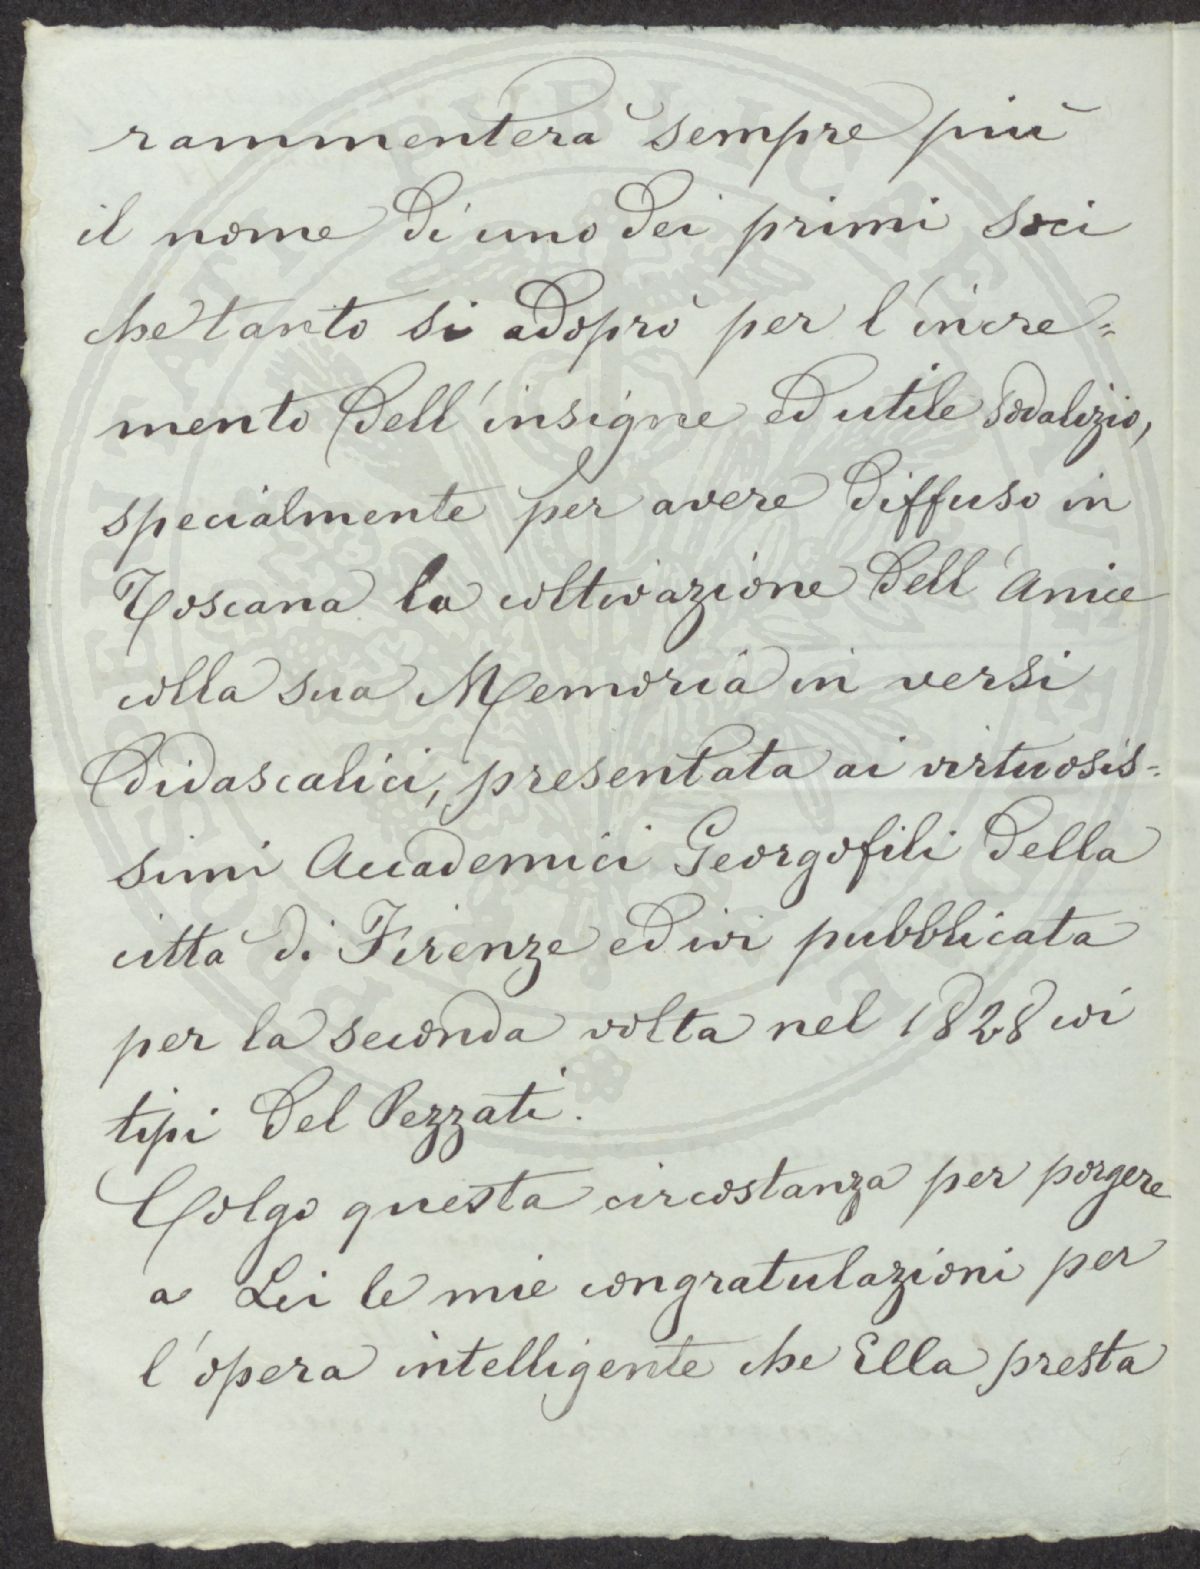 rammenterà sempre più
il nome di uno dei primi soci
che tanto si adoprò per l'incre=
mento dell'insigne ed utile Sodalizio,
specialmente per avere diffuso in
Toscana la coltivazione dell'Anice
colla sua Memoria in versi
didascalici, presentata ai virtuosis=
simi Accademici Georgofili della
città di Firenze ed ivi pubblicata
per la seconda volta nel 1828 coi
tipi del Pezzati.
Colgo questa circostanza per porgere
a Lei le mie congratulazioni per
l'opera intelligente che Ella presta